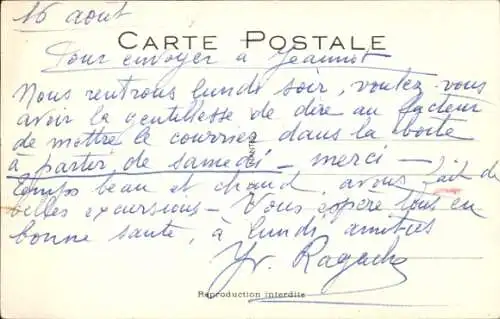 16 août
CARTE POSTALE
Pour envoyer à Jeannot
Nous rentrons lundi soir, voulez-vous
avoir la gentillesse de dire au facteur
de mettre le courrier dans la boite
à partir de samedi - merci -
temps beau et chaud, avons fait de
belles excursions - Vous espère tous en
bonne santé, à lundi, amitiés
Reproduction interdite